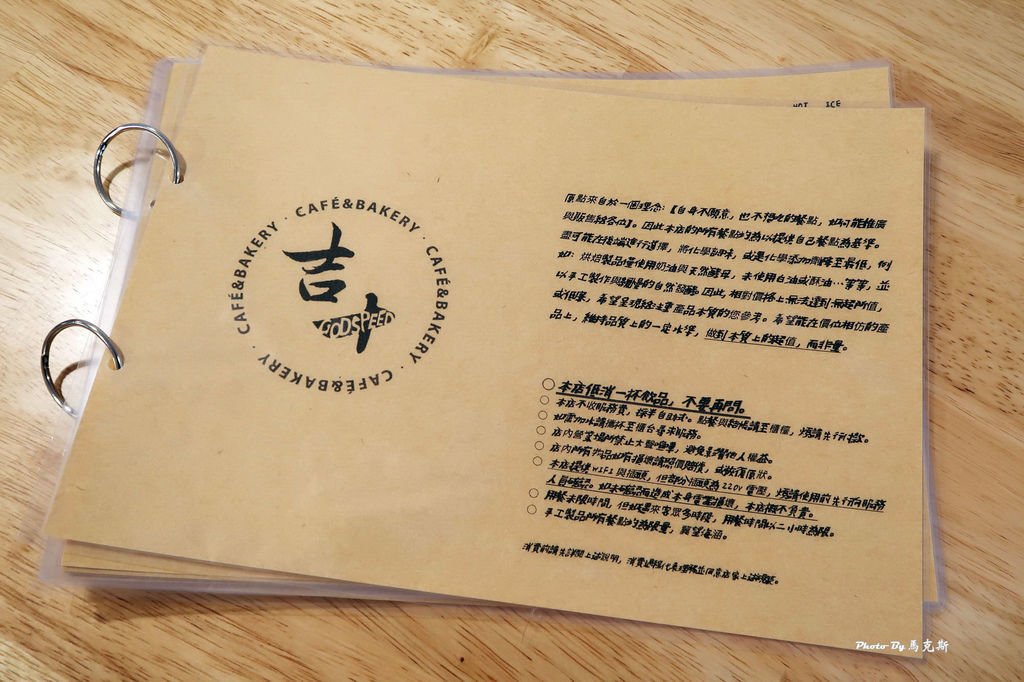 HOT ICE
CAFÉ&BAKERY · CAFÉ&BAKERY · CAFÉ&BAKERY · CAFÉ&BAKERY ·
吉
GODSPEED
原點來自於一個理念:『自身不願意,也不想吃的餐點,如何能推廣
與販售給各位』。因此本店的所有餐點均為以提供自己餐點為基準。
盡可能在後端進行選擇,將化學調味,或是化學添加劑降至最低,例
如:烘焙製品僅使用奶油與天然酵母,未使用白油或酥油…等等,並
以手工製作與緩慢的自然發酵。因此,相對價格上無法達到無超所值,
或低廉,希望呈現給注重產品本質的您參考。希望能在價位相仿的產
品上,維持品質上的一定水準,做到本質上的超值,而非量。
本店低消一杯飲品,不要再問。
本店不收服務費,採半自助式。點餐與結帳請至櫃檯,煩請先行付款。
如需加冰請攜杯至櫃台尋求服務。
店內營業場所禁止大聲喧嘩,避免影響他人權益。
店內所有物品如有損壞請照價賠償,或恢復原狀。
本店提供WIFI與插頭,但部分插頭為220V電壓,煩請使用前先行向服務
人員確認。如未確認而造成本身電器損壞,本店概不負責。
用餐未限時間,但如遇來客眾多時段,用餐時間以二小時為限。
手工製品所有餐點均為限量,冀望海涵。
消費前請先詳閱上述說明,消費過程代表理解並同意店家上述規範。
Photo By 馬克斯